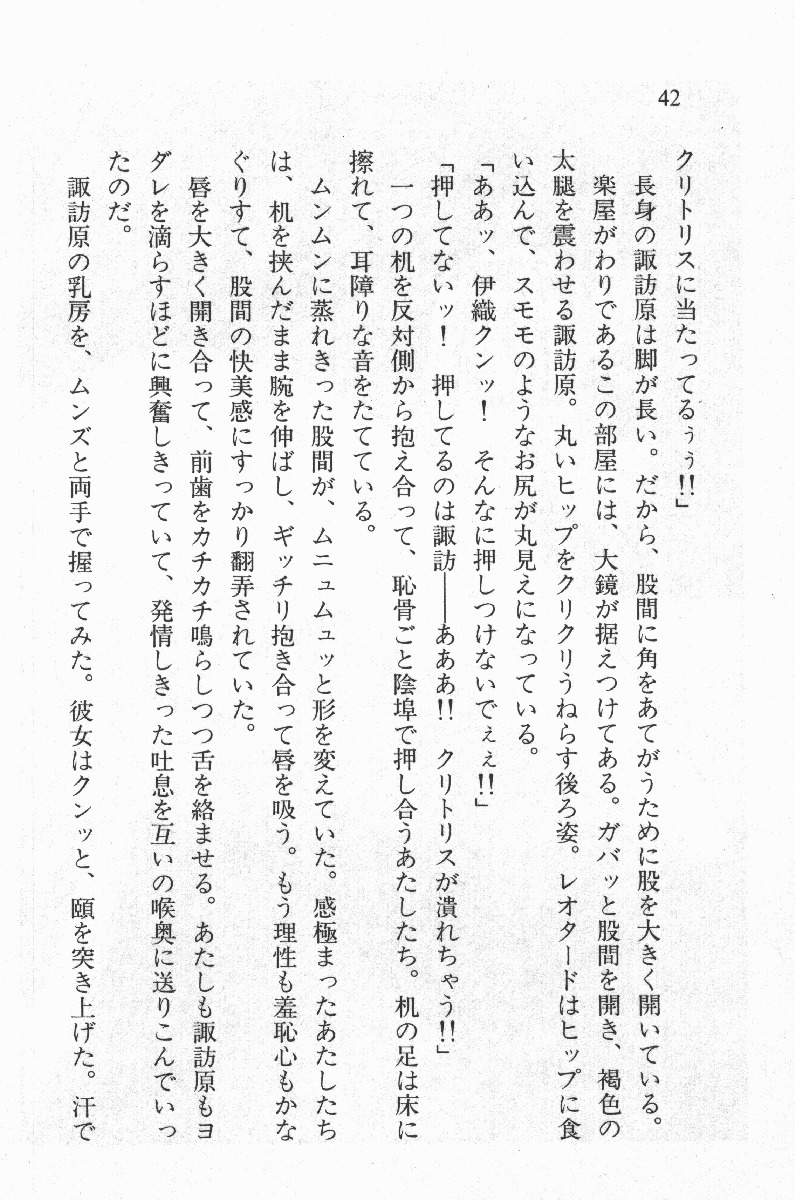 42
クリトリスに当たってるぅぅ!!」
長身の諏訪原は脚が長い。だから、股間に角をあてがうために股を大きく開いている。
楽屋がわりであるこの部屋には、大鏡が据えつけてある。ガバッと股間を開き、褐色の
太腿を震わせる諏訪原。丸いヒップをクリクリうねらす後ろ姿。レオタードはヒップに食
い込んで、スモモのようなお尻が丸見えになっている。
「ああッ、伊織クンッ！　そんなに押しつけないでぇぇ!!」
「押してないッ！　押してるのは諏訪――あああ!!　クリトリスが潰れちゃう!!」
一つの机を反対側から抱え合って、恥骨ごと陰埠で押し合うあたしたち。机の足は床に
擦れて、耳障りな音をたてている。
ムンムンに蒸れきった股間が、ムニュムュッと形を変えていた。感極まったあたしたち
は、机を挟んだまま腕を伸ばし、ギッチリ抱き合って唇を吸う。もう理性も羞恥心もかな
ぐりすて、股間の快美感にすっかり翻弄されていた。
唇を大きく開き合って、前歯をカチカチ鳴らしつつ舌を絡ませる。あたしも諏訪原もヨ
ダレを滴らすほどに興奮しきっていて、発情しきった吐息を互いの喉奥に送りこんでいっ
たのだ。
諏訪原の乳房を、ムンズと両手で握ってみた。彼女はクンッと、頤を突き上げた。汗で